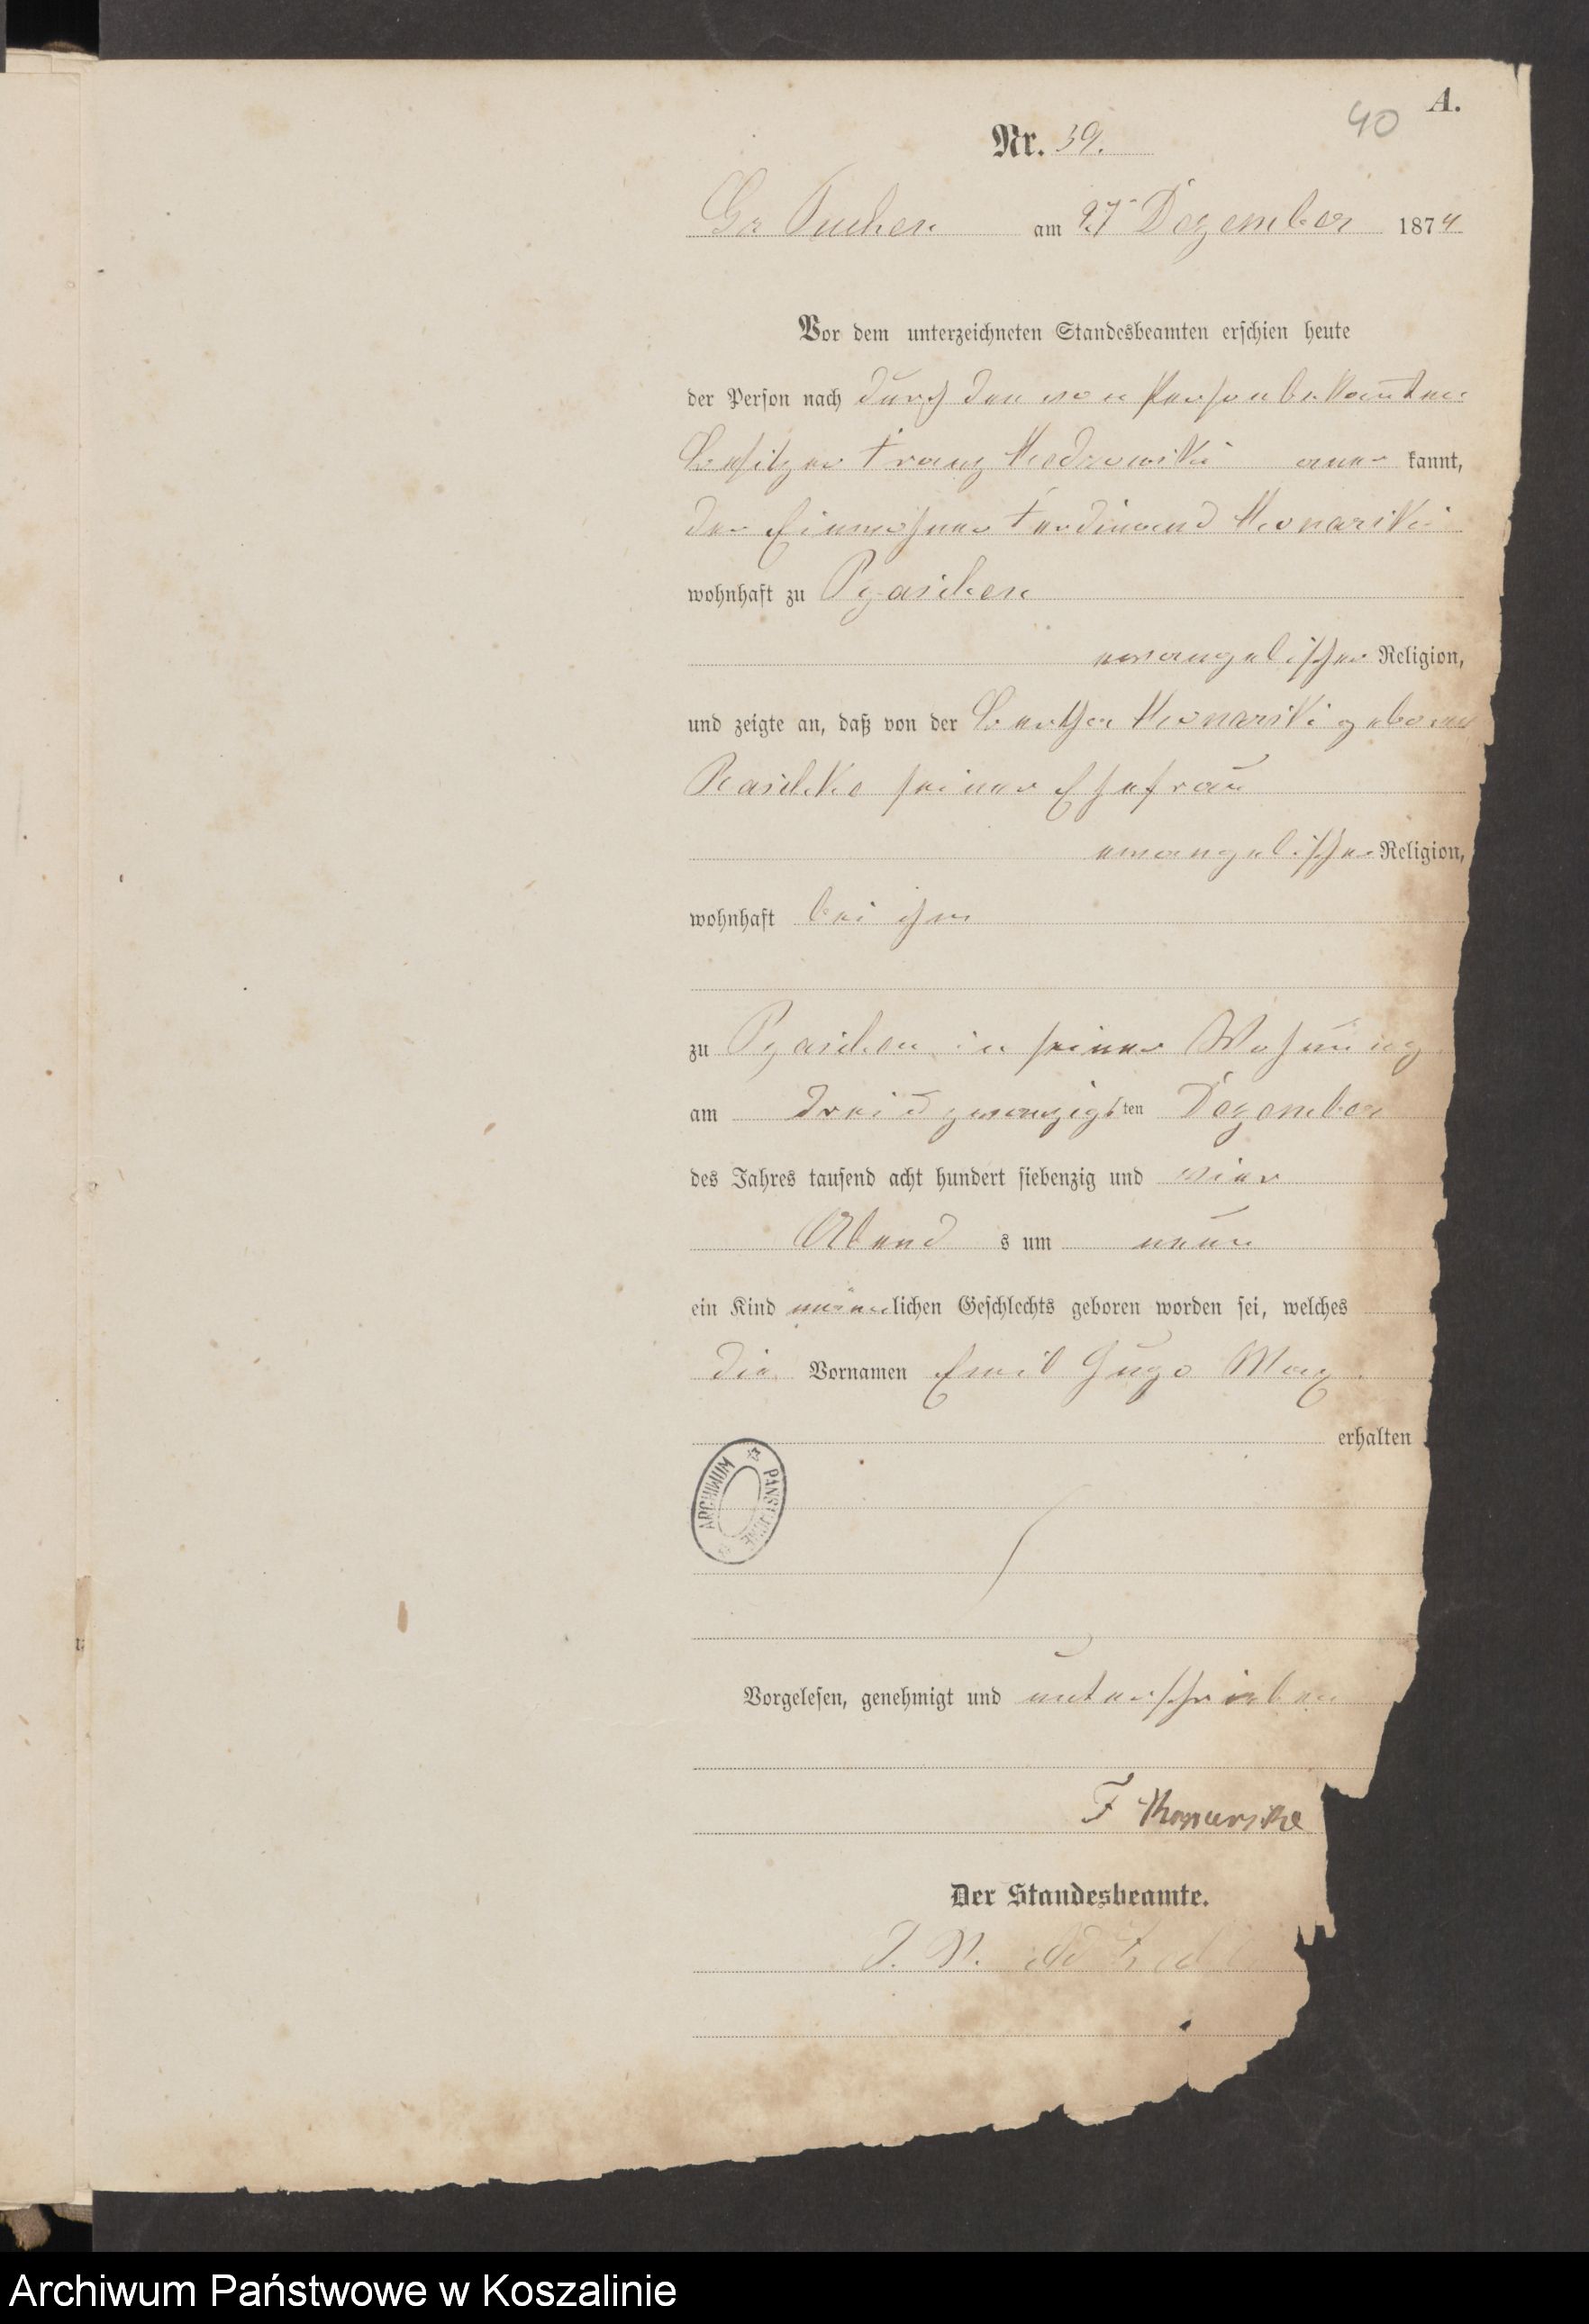 A.
40
Nr. 39.
Gr Tuchen am 27 Dezember 1874
Vor dem unterzeichneten Standesbeamten erschien heute
der Person nach durch den von Person bekannten
Besitzer Franz aner kannt,
der Einwohner Ferdinand
wohnhaft zu
evangelischer Religion,
und zeigte an, daß von der Bertha geborene
Raschke seiner Ehefrau
evangelischer Religion,
wohnhaft bei ihm
zu in seiner Wohnung
am drei u zwanzigsten Dezember
des Jahres tausend acht hundert siebenzig und vier
Abend s um neun
ein Kind männlichen Geschlechts geboren worden sei, welches
die Vornamen Emil Hugo Max
erhalten
ARCHIWUM
Vorgelesen, genehmigt und unterschrieben
F
Der Standesbeamte.
Archiwum Państwowe w Koszalinie